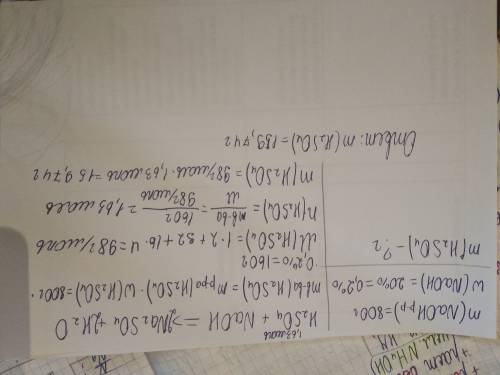 m(NaOH р-р)=800г
w(NaOH)=20%=0,2%
m(H₂SO₄)-?г
1,63моль
H₂SO₄ + NaOH => Na₂SO₄ + H₂O
mв-ва(H₂SO₄)=m рра(H₂SO₄)·w(H₂SO₄)=800г
·0,2%=160г
M(H₂SO₄)=1·2+32+16·4=98г/моль
n(H₂SO₄)=mв-ва/M=160г/98г/моль=1,63моль
m(H₂SO₄)=98г/моль·1,63моль=159,74г
Ответ: m(H₂SO₄)=159,74г
NH₄OH